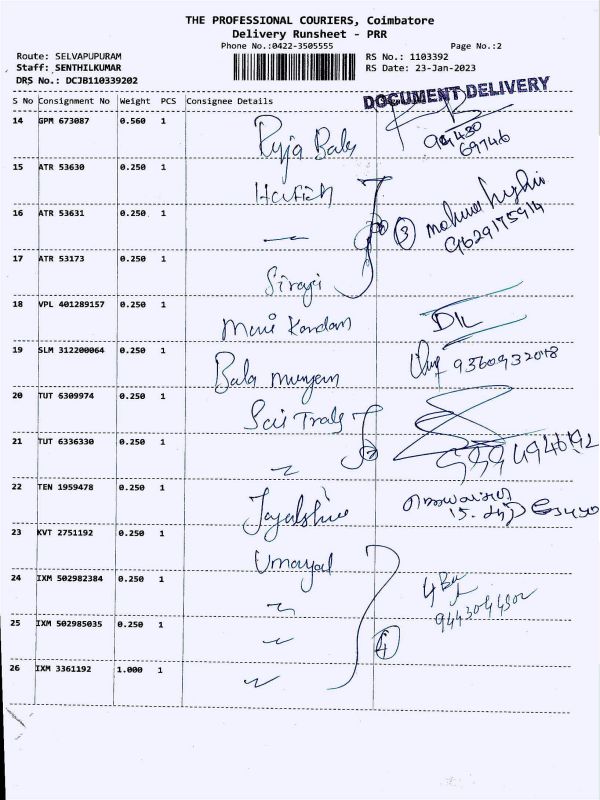 THE PROFESSIONAL COURIERS, Coimbatore
Delivery Runsheet - PRR
Phone No.:0422-3505555 Page No.:2
Route: SELVAPUPURAM RS No.: 1103392
Staff: SENTHILKUMAR RS Date: 23-Jan-2023
DRS No.: DCJB110339202
DOCUMENT DELIVERY
S No Consignment No Weight PCS Consignee Details
14 GPM 673087 0.560 1 Puja Baby 94430
69746
15 ATR 53630 0.250 1 Harish
16 ATR 53631 0.250 1 3 9629175914
17 ATR 53173 0.250 1 Siraji
18 VPL 401289157 0.250 1 Mani Kandan
19 SLM 312200064 0.250 1 Bala 9360932078
20 TUT 6309974 0.250 1 Sai Trads
21 TUT 6336330 0.250 1 2
22 TEN 1959478 0.250 1
23 KVT 2751192 0.250 1 Umayal
24 IXM 502982384 0.250 1
25 IXM 502985035 0.250 1 4
26 IXM 3361192 1.000 1